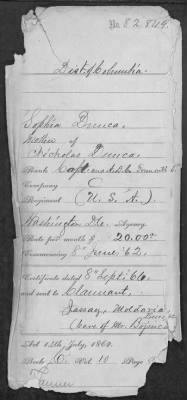 No. 82.849.
Dist of Columbia.
Sophia Dunca,
widow of
Nicholas Dunca
Rank Capt. and
Company
Regiment (U. S. A.)
Washington D.C. Agency
Rate per month $ 20.00
Commencing 8th June '62.
Certificate dated 8th Sept. '66
and sent to Claimant,
Jassay, Moldavia,
(care of Mr.
Act 14th July, 1862.
Book Vol. 10 Page